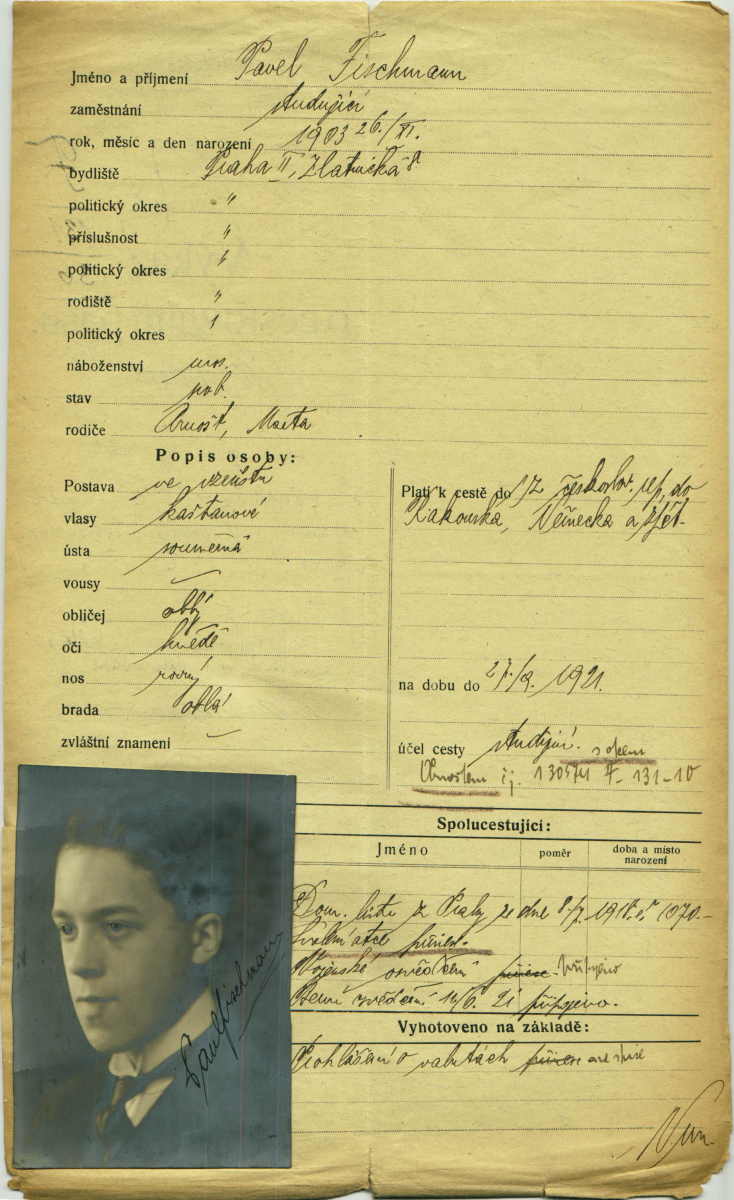 Jméno a příjmení Pavel Fischmann
zaměstnání studující
rok, měsíc a den narození 1903 26./VI.
bydliště Praha II, Zlatnická 8
politický okres "
příslušnost "
politický okres "
rodiště "
politický okres "
náboženství mos.
stav svob.
rodiče Arnošt, Marta
Popis osoby:
Postava ve vzrůstu
vlasy kaštanové
ústa souměrná
vousy
obličej oblý
oči hnědé
nos rovný
brada oblá
zvláštní znamení
Platí k cestě do z českoslov. rep. do
Rakouska, Německa a zpět.
na dobu do 1921.
účel cesty studijní. s otcem
Arnoštem čj. 130574 131-10
Spolucestující:
Jméno poměr doba a místo narození
Dom. listu z Prahy ze dne
Svolení otce
Vojenské osvědčení
osvědčení 21 připojeno.
Vyhotoveno na základě:
Prohlášení o valutách
Paul Fischmann